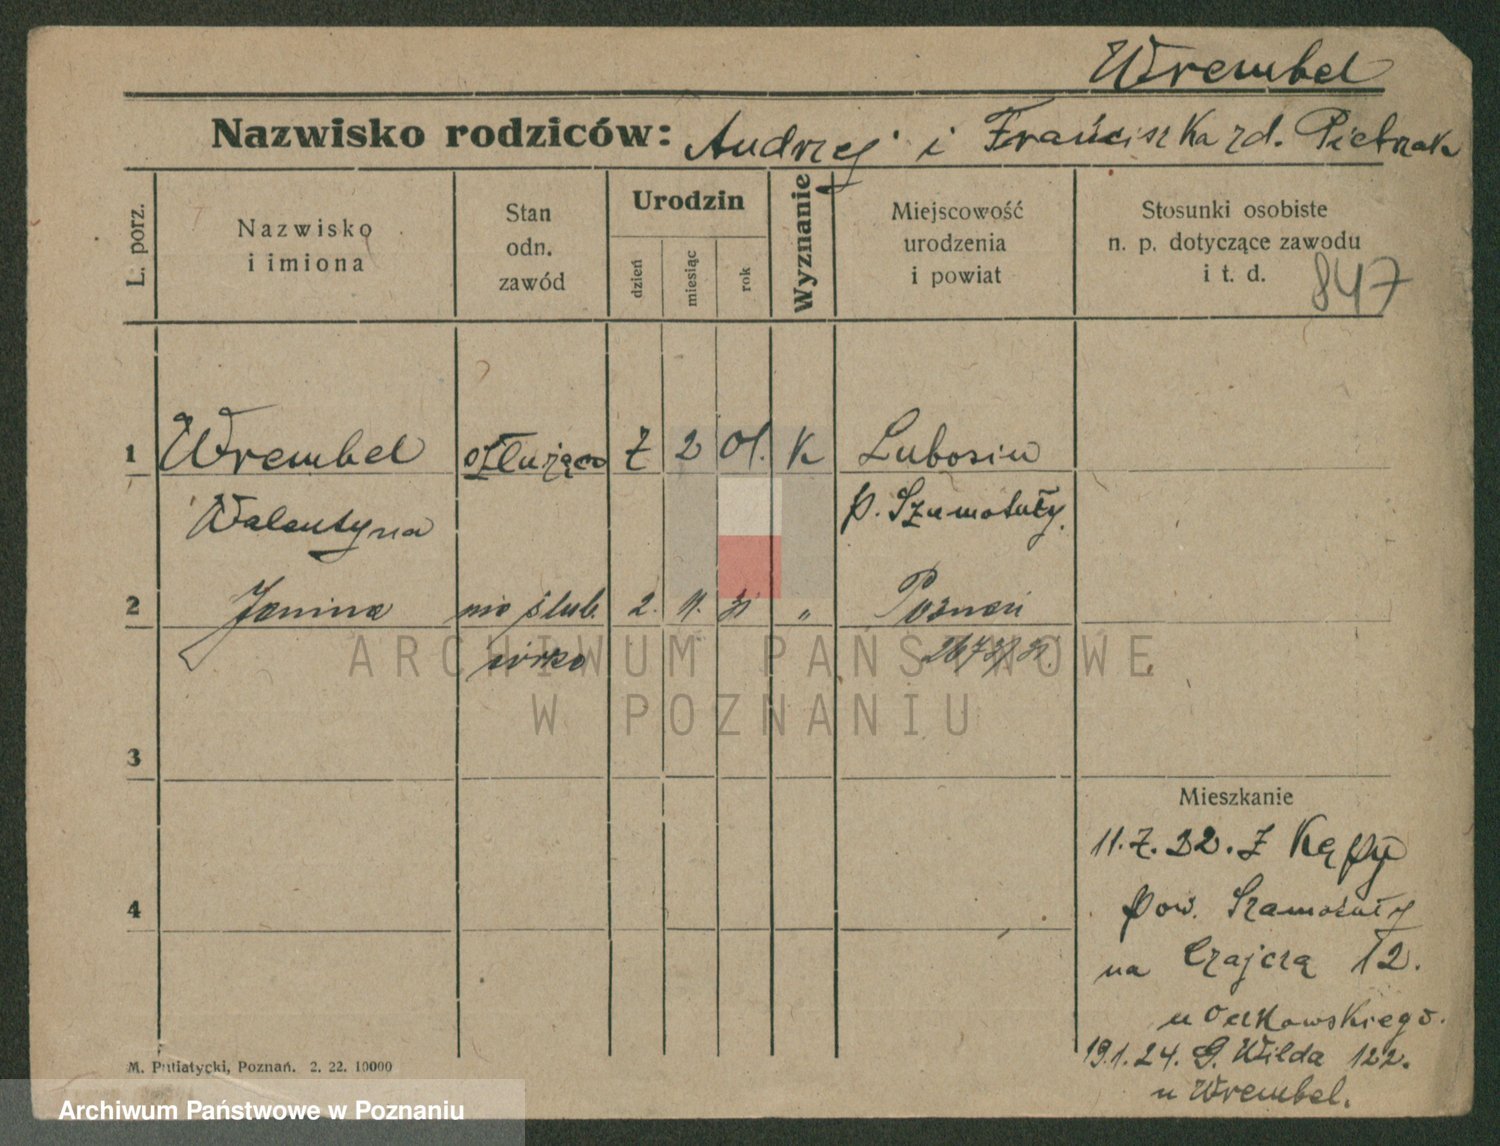 Wrembel
Nazwisko rodziców: Andrzej i Franciszka zd. Pietrzak
L. porz.
Nazwisko
i imiona
Stan
odn.
zawód
Urodzin
dzień
miesiąc
rok
Wyznanie
Miejscowość
urodzenia
i powiat
Stosunki osobiste
n. p. dotyczące zawodu
i t. d.
847
1 Wrembel służąca 7 2 01. K Lubosin
Walentyna p. Szamotuły.
2 Janina nieślub. 2. 11. 31 „ Poznań
córka
3
4
Mieszkanie
11.7.22. z Kępy
pow. Szamotuły
na Czajczą 12.
u
19.1.24. G. Wilda 122.
u Wrembel.
M. Putiatycki, Poznań. 2. 22. 10000
ARCHIWUM PAŃSTWOWE
W POZNANIU
Archiwum Państwowe w Poznaniu